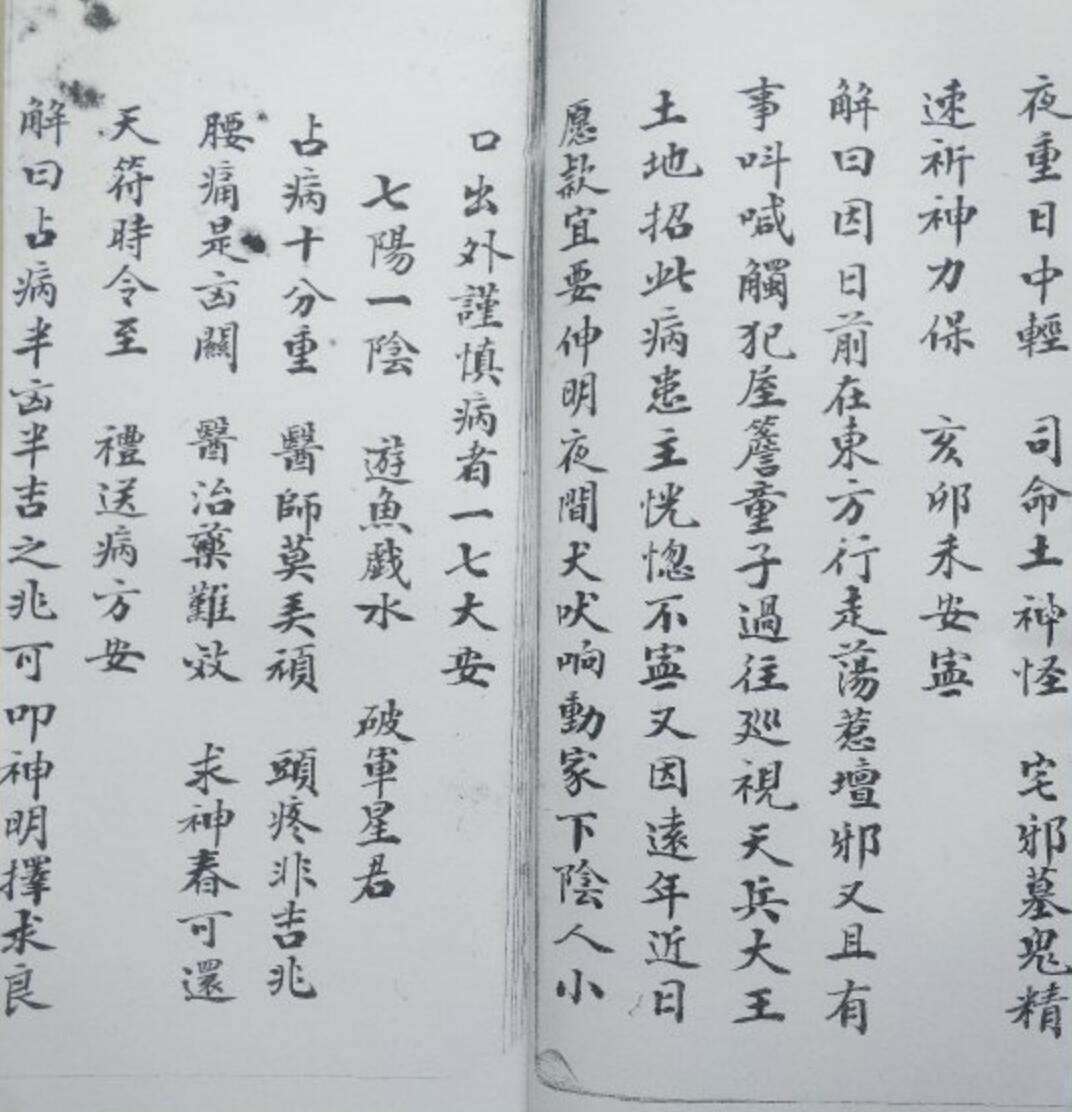 夜重日中輕　司命土神怪　宅邪墓鬼精
速祈神力保　亥卯未安寍
解曰因日前在東方行走蕩惹壇邪又且有
事呌喊觸犯屋簷童子過往巡視天兵大王
土地招此病患主恍惚不寍又因遠年近日
愿款宜要伸明夜間犬吠响動家下陰人小
口出外謹慎病者一七大安
七陽一陰　遊魚戲水　破軍星君
占病十分重　醫師莫　頭疼非吉兆
腰痛是凶關　醫治藥難效　求神春可還
天符時令至　禮送病方安
解曰占病半凶半吉之兆可叩神明擇求良